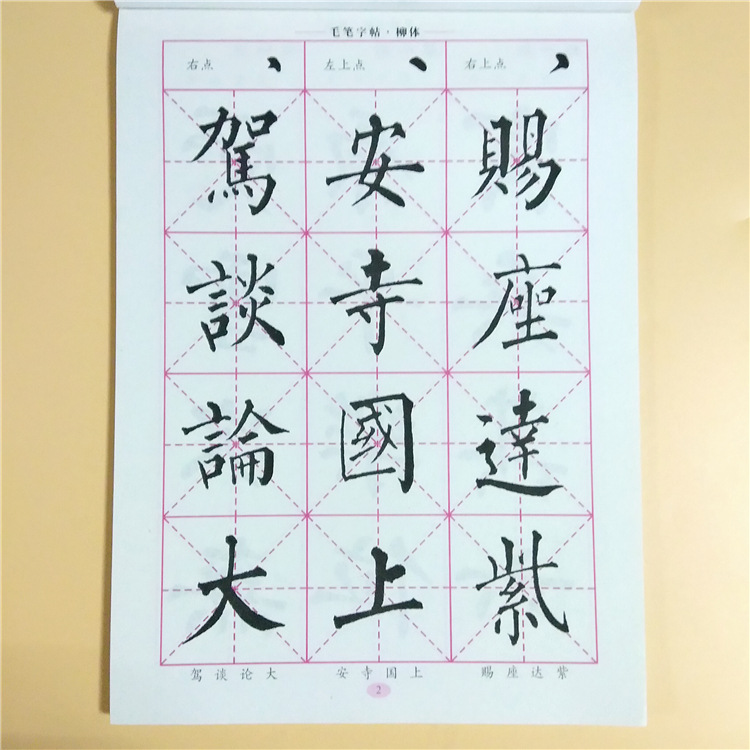 毛笔字帖·柳体
右点 左上点 右上点
駕 安 賜
談 寺 座
論 國 達
大 上 紫
驾谈论大 安寺国上 赐座达紫
2